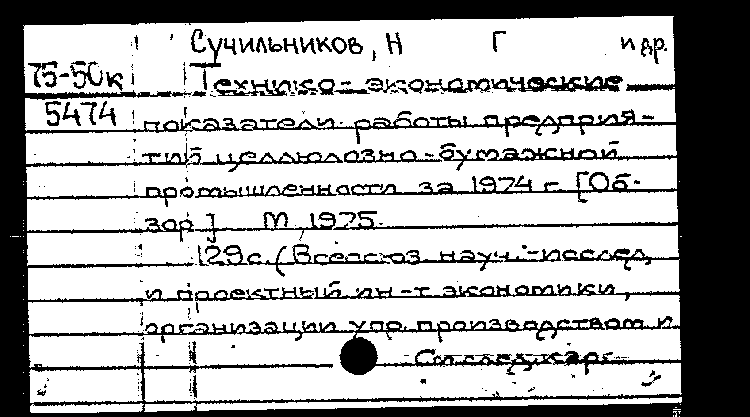 Сучильников, Н Г и др.
75-50к Технико-экономические
5474 показатели работы предприя-
тий целлюлозно-бумажной
промышленности за 1974 г. [Об-
зор]. М, 1975.
129с. (Всесоюз. науч.-исслед.
и проектный ин-т экономики,
организации упр. производством и
См. след. карт.